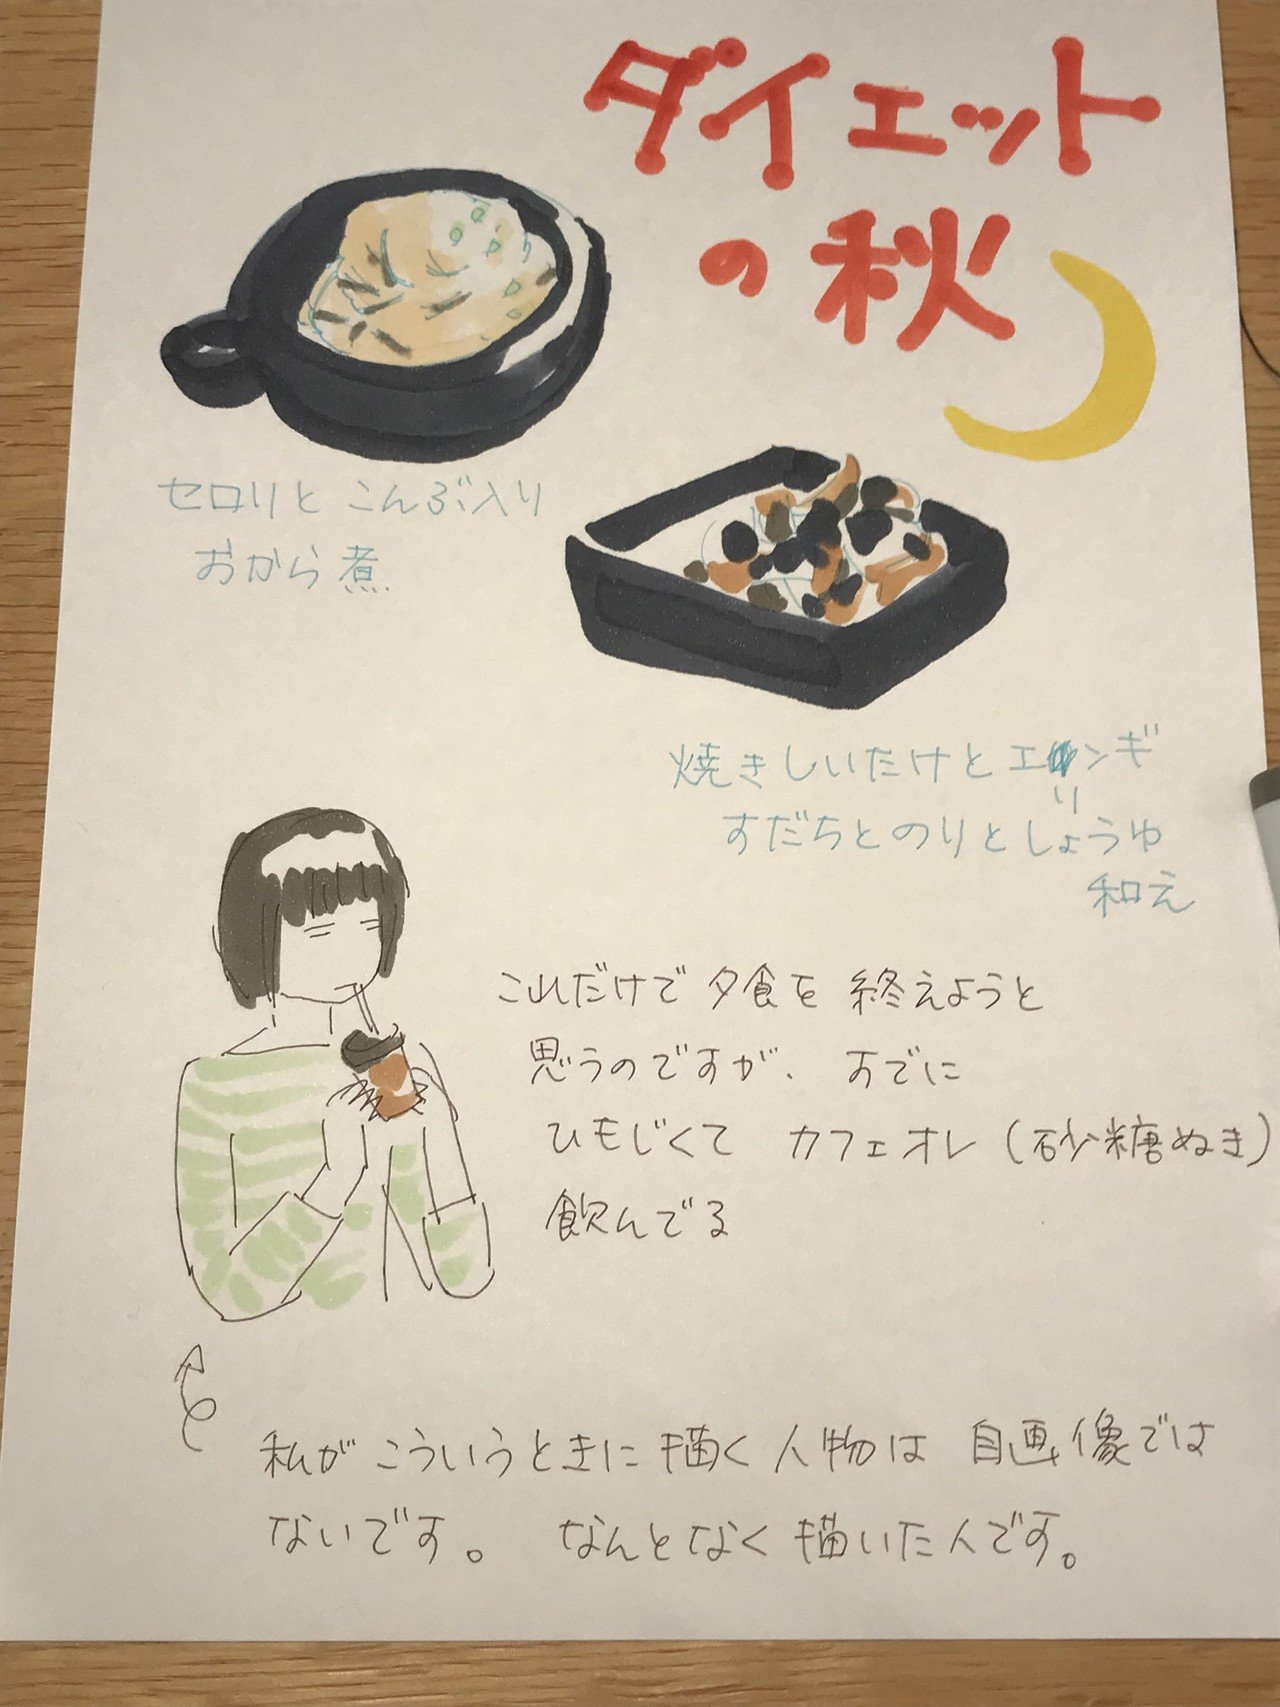 ダイエット
の秋
セロリと こんぶ入り
おから煮
焼きしいたけとエリンギ
すだちとのりとしょうゆ
和え
これだけで夕食を 終えようと
思うのですが、 すでに
ひもじくて カフェオレ(砂糖ぬき)
飲んでる
私が こういうときに 描く 人物は 自画像では
ないです。 なんとなく 描いた人です。